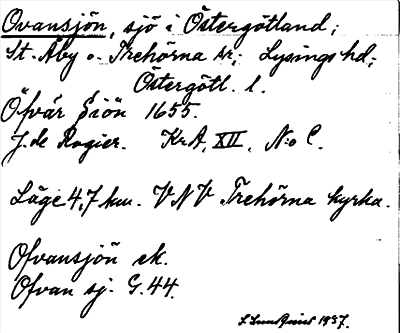 Ovansjön, sjö i Östergötland;
St. Åby o. Trehörna sr; Lysings hd;
Östergötl. l.
Öfvár Siön 1655.
J. de Rogier. KrA, XII, No C.
Läge 4,7 km. VNV Trehörna kyrka.
Ofvansjön ek.
Ofvan sj. G. 44.
1937.